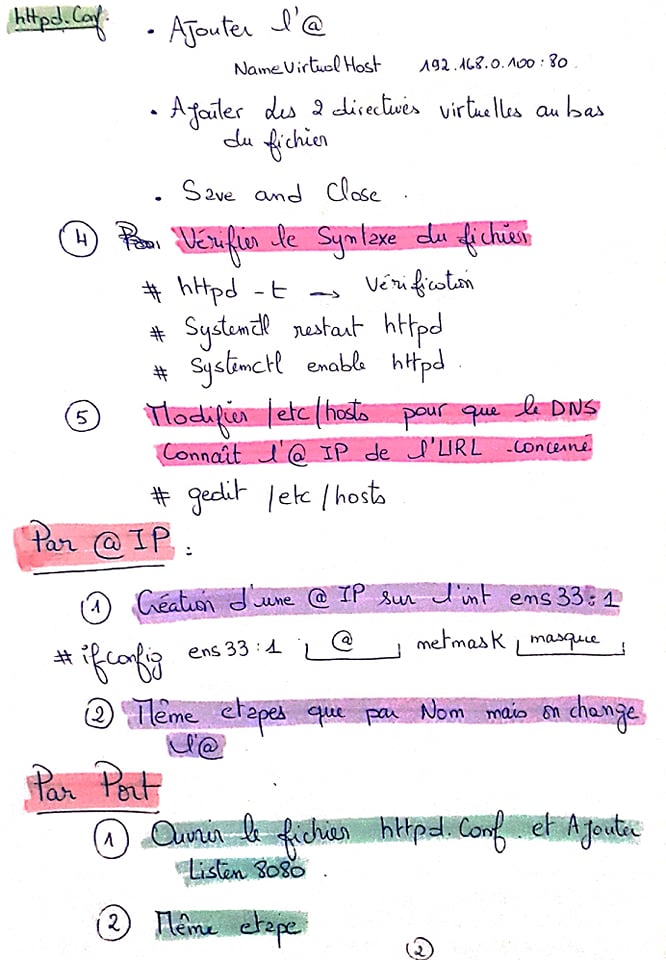 httpd.Conf.
• Ajouter l'@
NameVirtualHost 192.168.0.100:80
• Ajouter les 2 directives virtuelles au bas
du fichier
• Save and Close.
④ Vérifier le Syntaxe du fichier
# httpd -t → Vérification
# Systemctl restart httpd
# Systemctl enable httpd.
⑤ Modifier /etc/hosts pour que le DNS
Connaît l'@ IP de l'URL concerné
# gedit /etc/hosts
Par @ IP :
① Création d'une @ IP sur l'int ens33:1
# ifconfig ens33:1 @ netmask masque
② Même etapes que par Nom mais on change
l'@
Par Port
① Ouvrir le fichier httpd.Conf. et Ajouter
Listen 8080.
② Même etape
②